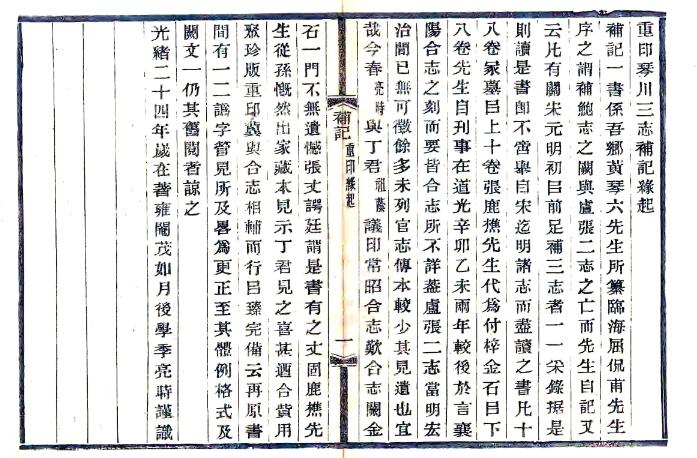 重印琴川三志補記緣起
補記一書係吾鄉黃琴六先生所纂臨海屈侃甫先生
序之謂補鮑志之闕與盧張二志之亡而先生自記又
云凡有關宋元明初㠯前足補三志者一一采錄據是
則讀是書卽不啻舉自宋迄明諸志而盡讀之書凡十
八卷家嘉㠯上十卷張鹿樵先生代爲付梓金石㠯下
八卷先生自刊事在道光辛卯乙未兩年較後於言襄
陽合志之刻而要皆合志所不詳葢盧張二志當明宏
治閒已無可徵餘多未列官志傳本較少其見遺也宜
哉今春亮時與丁君祖蔭議印常昭合志歎合志闕金
補記
重印緣起
一
石一門不無遺憾張丈諤廷謂是書有之丈固鹿樵先
生從孫慨然出家藏本見示丁君見之喜甚迺合貲用
聚珍版重印冀與合志相輔而行㠯臻完備云再原書
間有一二譌字管見所及畧爲更正至其體例格式及
闕文一仍其舊閱者諒之
光緒二十四年歲在著雍閹茂如月後學季亮時謹識